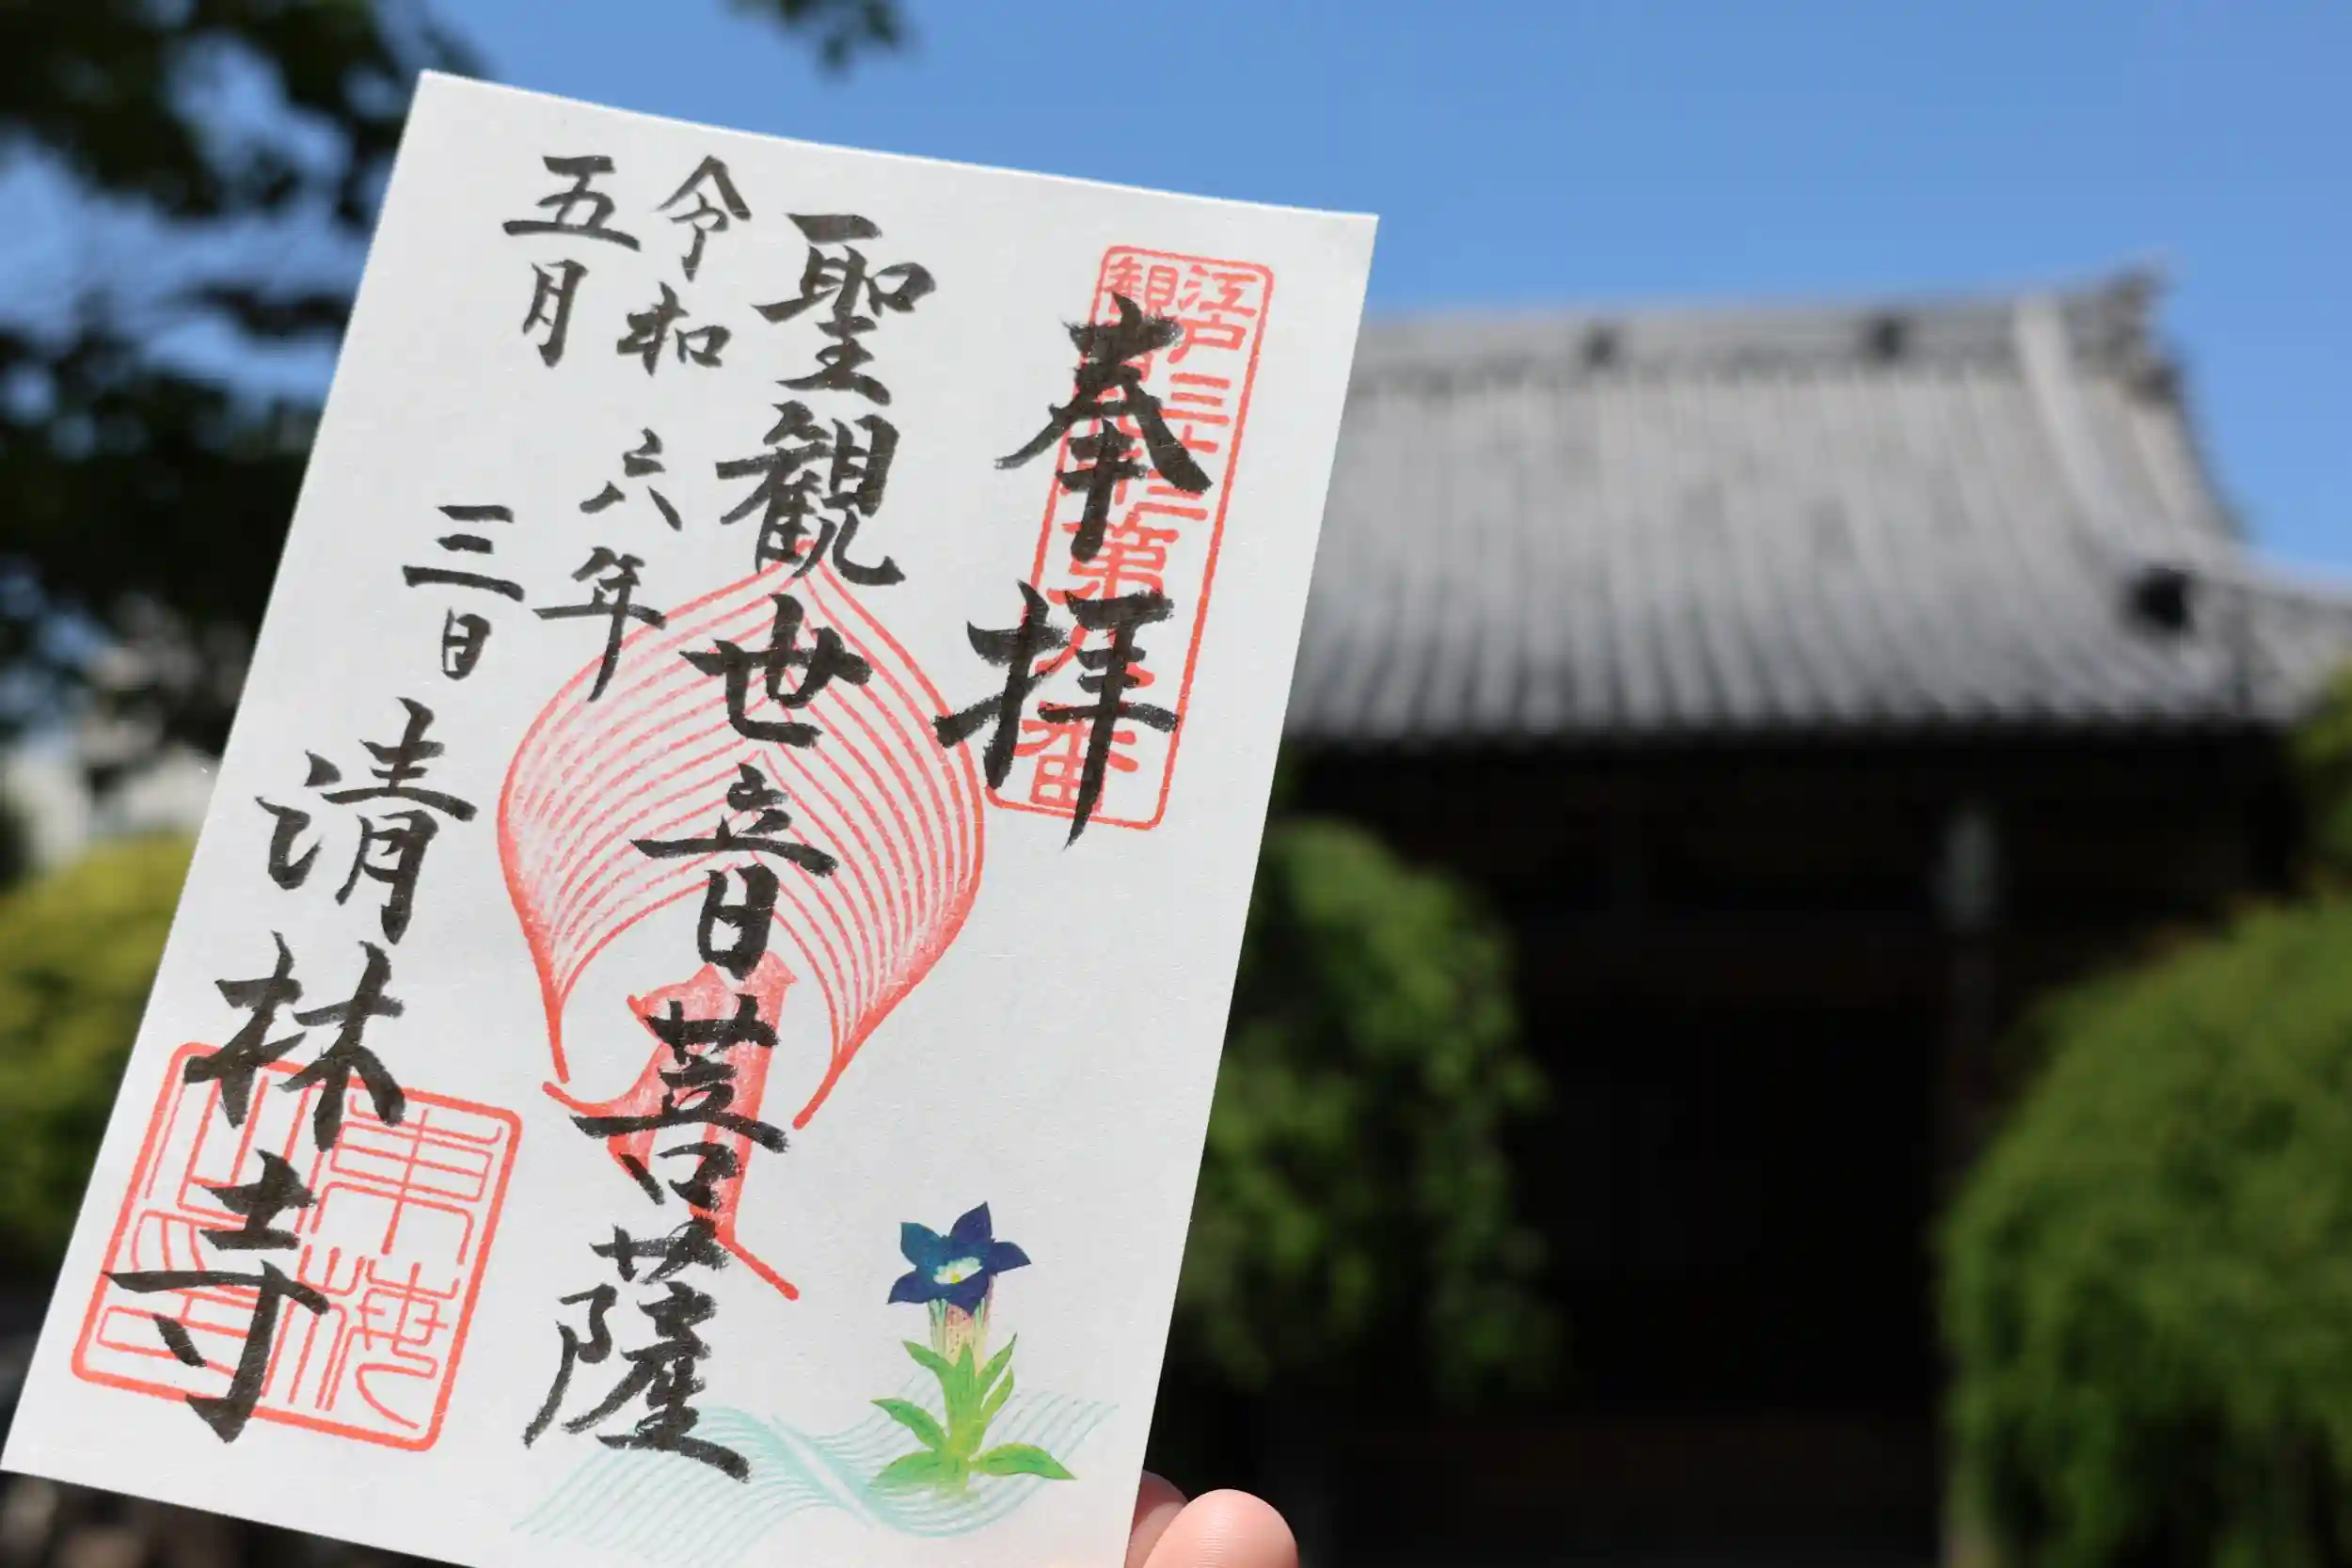 奉拝
江戸三十三
観
第八番
聖観世音菩薩
令和六年
五月三日
清林寺
東梅
山印